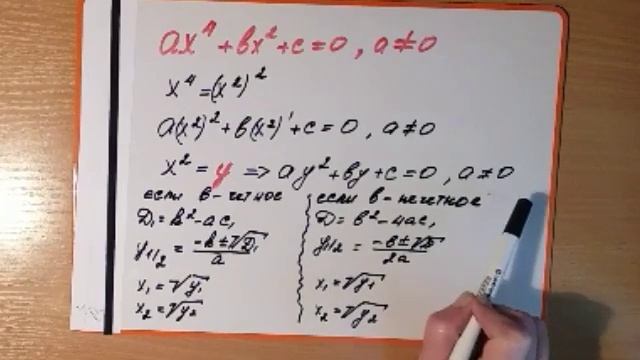 ax⁴+bx²+c=0, a≠0
x⁴=(x²)²
a(x²)²+b(x²)¹+c=0, a≠0
x²=y ⇒ ay²+by+c=0, a≠0
если b-четное
D₁=k²-ac,
y₁/₂ = (-k±√D₁)/a
x₁=√y₁
x₂=√y₂
если b-нечетное
D=b²-4ac,
y₁/₂ = (-b±√D)/2a
x₁=√y₁
x₂=√y₂